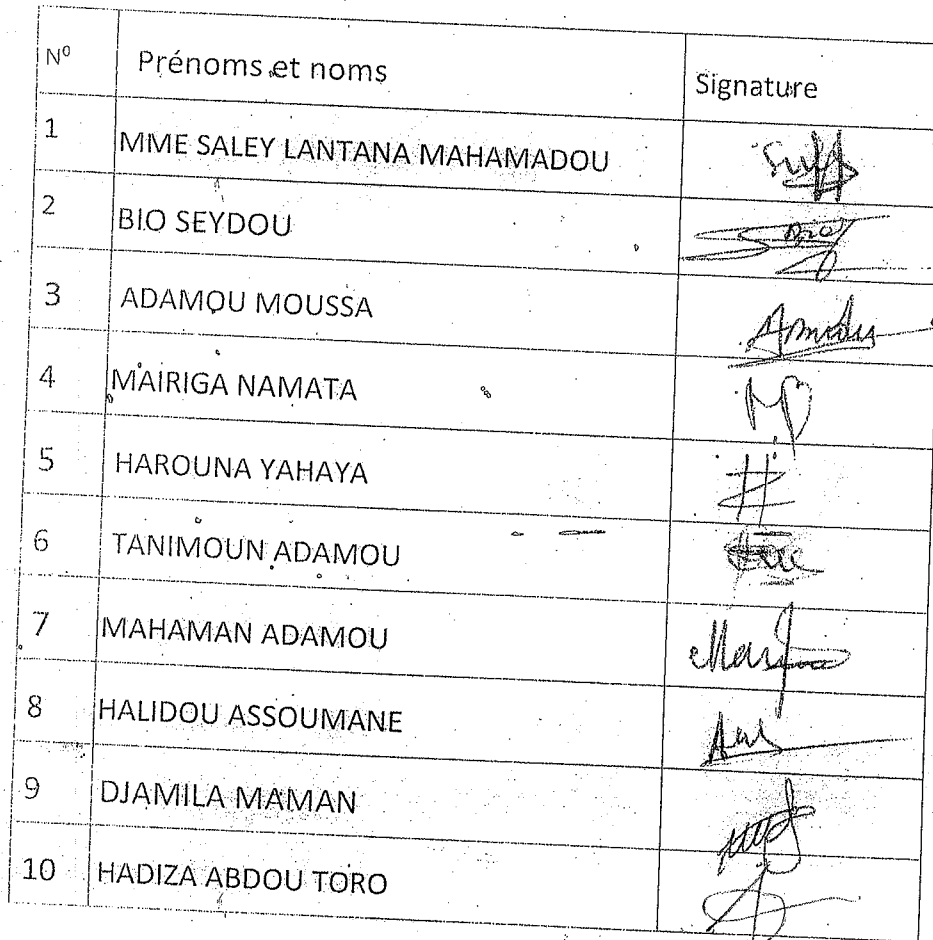 N° Prénoms et noms Signature
1 MME SALEY LANTANA MAHAMADOU
2 BIO SEYDOU
3 ADAMOU MOUSSA
4 MAIRIGA NAMATA
5 HAROUNA YAHAYA
6 TANIMOUN ADAMOU
7 MAHAMAN ADAMOU
8 HALIDOU ASSOUMANE
9 DJAMILA MAMAN
10 HADIZA ABDOU TORO